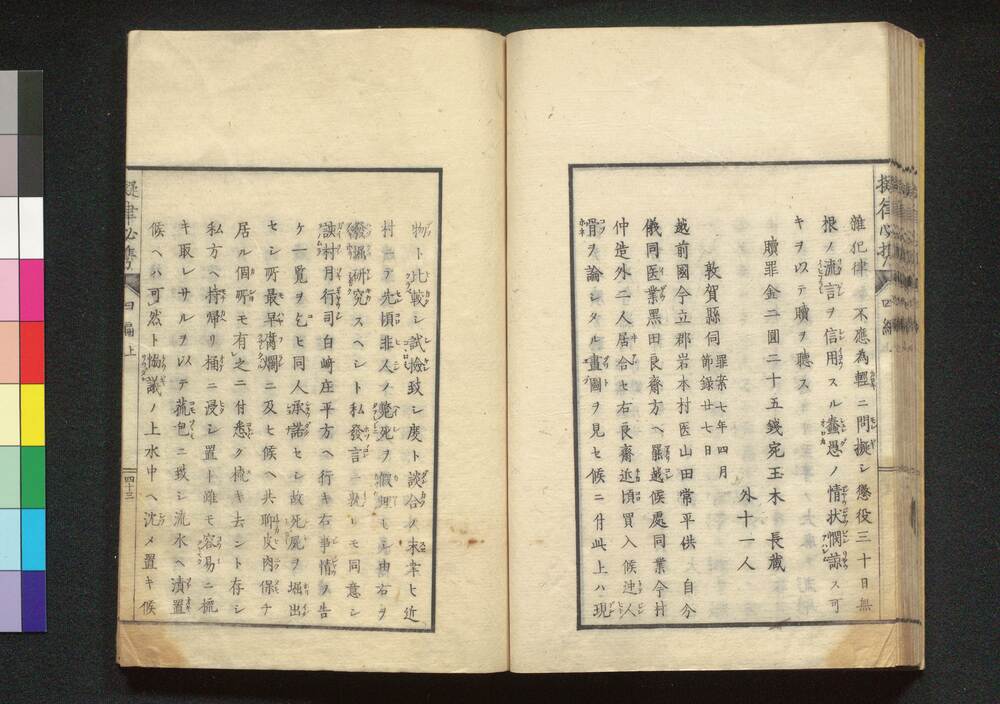 擬律必携 四編上
雑犯律 不應為輕ニ問擬シ懲役三十日無
根ノ流言ヲ信用スル蠢愚ノ情状憫諒ス可
キヲ以テ贖ヲ聴ス
贖罪金二圓二十五錢宛玉木長蔵
外十一人
敦賀縣伺 罪案七年四月
飾錄廿七日
越前國今立郡岩本村医山田常平供 自分
儀同医業黒田良齋方ヘ罷越候處同業今村
仲造外二人居合セ右良齋近頃買入候連人
骨ヲ論シタル畫圖ヲ見セ候ニ付此上ハ現
物ト比較シ試検致シ度ト談合ノ末幸ヒ近
村ニテ先頃非人ノ斃死ヲ假埋モシ由右ヲ
發掘研究スヘシト私發言ニ就レモ同意シ
該村月行司白﨑庄平方ヘ行キ右事情ヲ告
ケ一覧ヲ乞ヒ同人承諾セシ故死屍ヲ堀出
セシ所最早腐爛ニ及ヒ候ヘ共聊皮肉保チ
居ル個所モ有之ニ付悉ク掩キ去シト存シ
私方ヘ持帰リ桶ニ浸シ置ト雖モ容易ニ
キ取レサルヲ以テ菰包ニ致シ流水ヘ漬置
候ヘハ可然ト協議ノ上水中ヘ沈メ置キ候
擬律必携 四編上
四十三